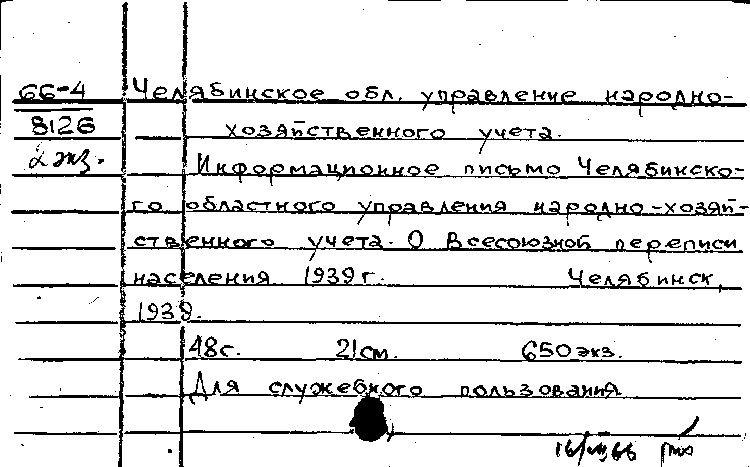 66-4 Челябинское обл. управление народно-
8126 хозяйственного учета.
2 экз. Информационное письмо Челябинско-
го областного управления народно-хозяй-
ственного учета. О Всесоюзной переписи
населения 1939 г. Челябинск,
1939.
48с. 21см. 650 экз.
Для служебного пользования